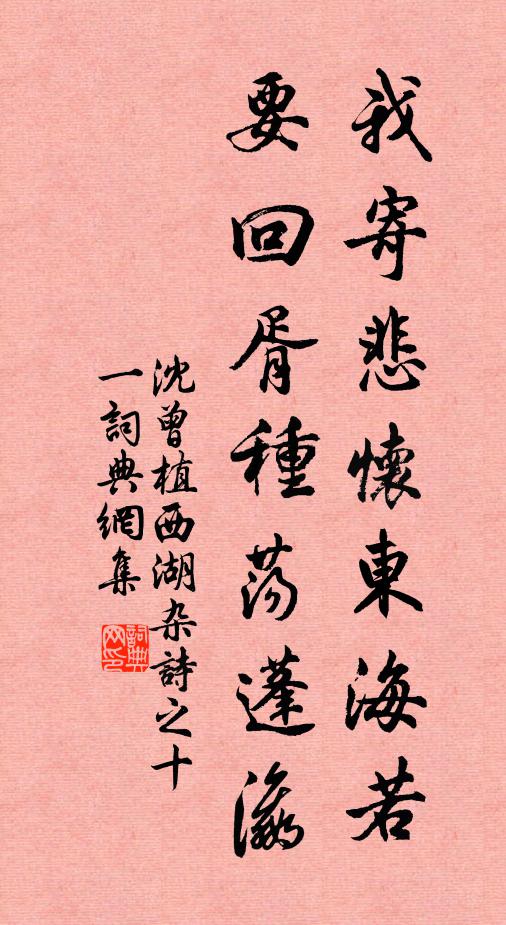 我寄悲懷東海若
要回胥種蕩蓬瀛
沈曾植西湖杂詩之十
一詞典網集
詞典
网印